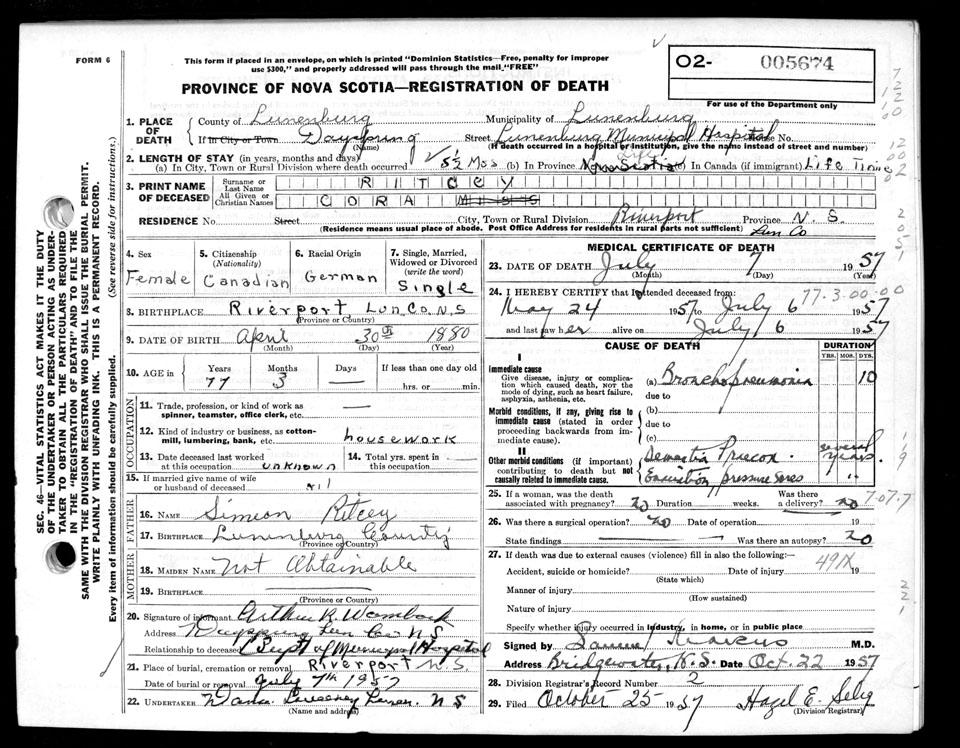 FORM 6
This form if placed in an envelope, on which is printed "Dominion Statistics—Free, penalty for improper
use $300," and properly addressed will pass through the mail "FREE"
O2- 005674
For use of the Department only
PROVINCE OF NOVA SCOTIA—REGISTRATION OF DEATH
SEC. 46—VITAL STATISTICS ACT MAKES IT THE DUTY
OF THE UNDERTAKER OR PERSON ACTING AS UNDER-
TAKER TO OBTAIN ALL THE PARTICULARS REQUIRED
IN THE "REGISTRATION OF DEATH" AND TO FILE THE
SAME WITH THE DIVISION REGISTRAR WHO SHALL ISSUE THE BURIAL PERMIT.
WRITE PLAINLY WITH UNFADING INK. THIS IS A PERMANENT RECORD.
Every item of information should be carefully supplied. (See reverse side for instructions.)
1. PLACE OF DEATH
County of Lunenburg Municipality of Lunenburg
If in City or Town Dayspring Street Lunenburg Municipal Hospital No.
(Name) (If death occurred in a hospital or institution, give the name instead of street and number)
2. LENGTH OF STAY (in years, months and days)
(a) In City, Town or Rural Division where death occurred 5½ Mos (b) In Province Life Nova Scotia (c) In Canada (if immigrant) Life Time
3. PRINT NAME OF DECEASED
Surname or Last Name RITCEY
All Given or Christian Names CORA Miss
RESIDENCE No. Street City, Town or Rural Division Riverport Province N. S.
(Residence means usual place of abode. Post Office Address for residents in rural parts not sufficient) Lun Co
4. Sex Female
5. Citizenship (Nationality) Canadian
6. Racial Origin German
7. Single, Married, Widowed or Divorced (write the word) Single
8. BIRTHPLACE Riverport Lun. Co. N.S
(Province or Country)
9. DATE OF BIRTH April 30th 1880
(Month) (Day) (Year)
10. AGE IN Years 77 Months 3 Days — If less than one day old hrs. or min.
OCCUPATION
11. Trade, profession, or kind of work as spinner, teamster, office clerk, etc. —
12. Kind of industry or business, as cotton-mill, lumbering, bank, etc. housework
13. Date deceased last worked at this occupation unknown
14. Total yrs. spent in this occupation —
15. If married give name of wife or husband of deceased nil
FATHER
16. NAME Simeon Ritcey
17. BIRTHPLACE Lunenburg County
(Province or Country)
MOTHER
18. MAIDEN NAME Not Obtainable
19. BIRTHPLACE
(Province or Country)
20. Signature of informant Arthur R. Wambach
Address Dayspring Lun Co N S
Relationship to deceased (Supt of Municipal Hospital
21. Place of burial, cremation or removal Riverport N.S.
Date of burial or removal July 7th 1957
22. UNDERTAKER N S
(Name and address)
MEDICAL CERTIFICATE OF DEATH
23. DATE OF DEATH July 7 1957
(Month) (Day) (Year)
24. I HEREBY CERTIFY that I attended deceased from: 77-3-00-00
May 24 1957 to July 6 1957
and last saw her alive on July 6 1957
CAUSE OF DEATH DURATION
YRS. MOS. DYS.
I
Immediate cause
Give disease, injury or complication which caused death, NOT the mode of dying, such as heart failure, asphyxia, asthenia, etc.
(a) Bronchopneumonia 10
due to
Morbid conditions, if any, giving rise to immediate cause (stated in order proceeding backwards from immediate cause).
(b)
due to
(c)
II
Other morbid conditions (if important) contributing to death but not causally related to immediate cause.
Dementia Praecox. several years.
Emaciation pressure sores
25. If a woman, was the death associated with pregnancy? No Duration weeks. Was there a delivery? no 707.7
26. Was there a surgical operation? No Date of operation 19
State findings — Was there an autopsy? No
27. If death was due to external causes (violence) fill in also the following:—
Accident, suicide or homicide? Date of injury 19 491X
(State which)
Manner of injury
(How sustained)
Nature of injury
Specify whether injury occurred in industry, in home, or in public place
Signed by Marcus M.D.
Address Bridgewater, N.S. Date Oct. 22 1957
28. Division Registrar's Record Number 2
29. Filed October 25 1957 Hazel E. Selig
(Division Registrar)